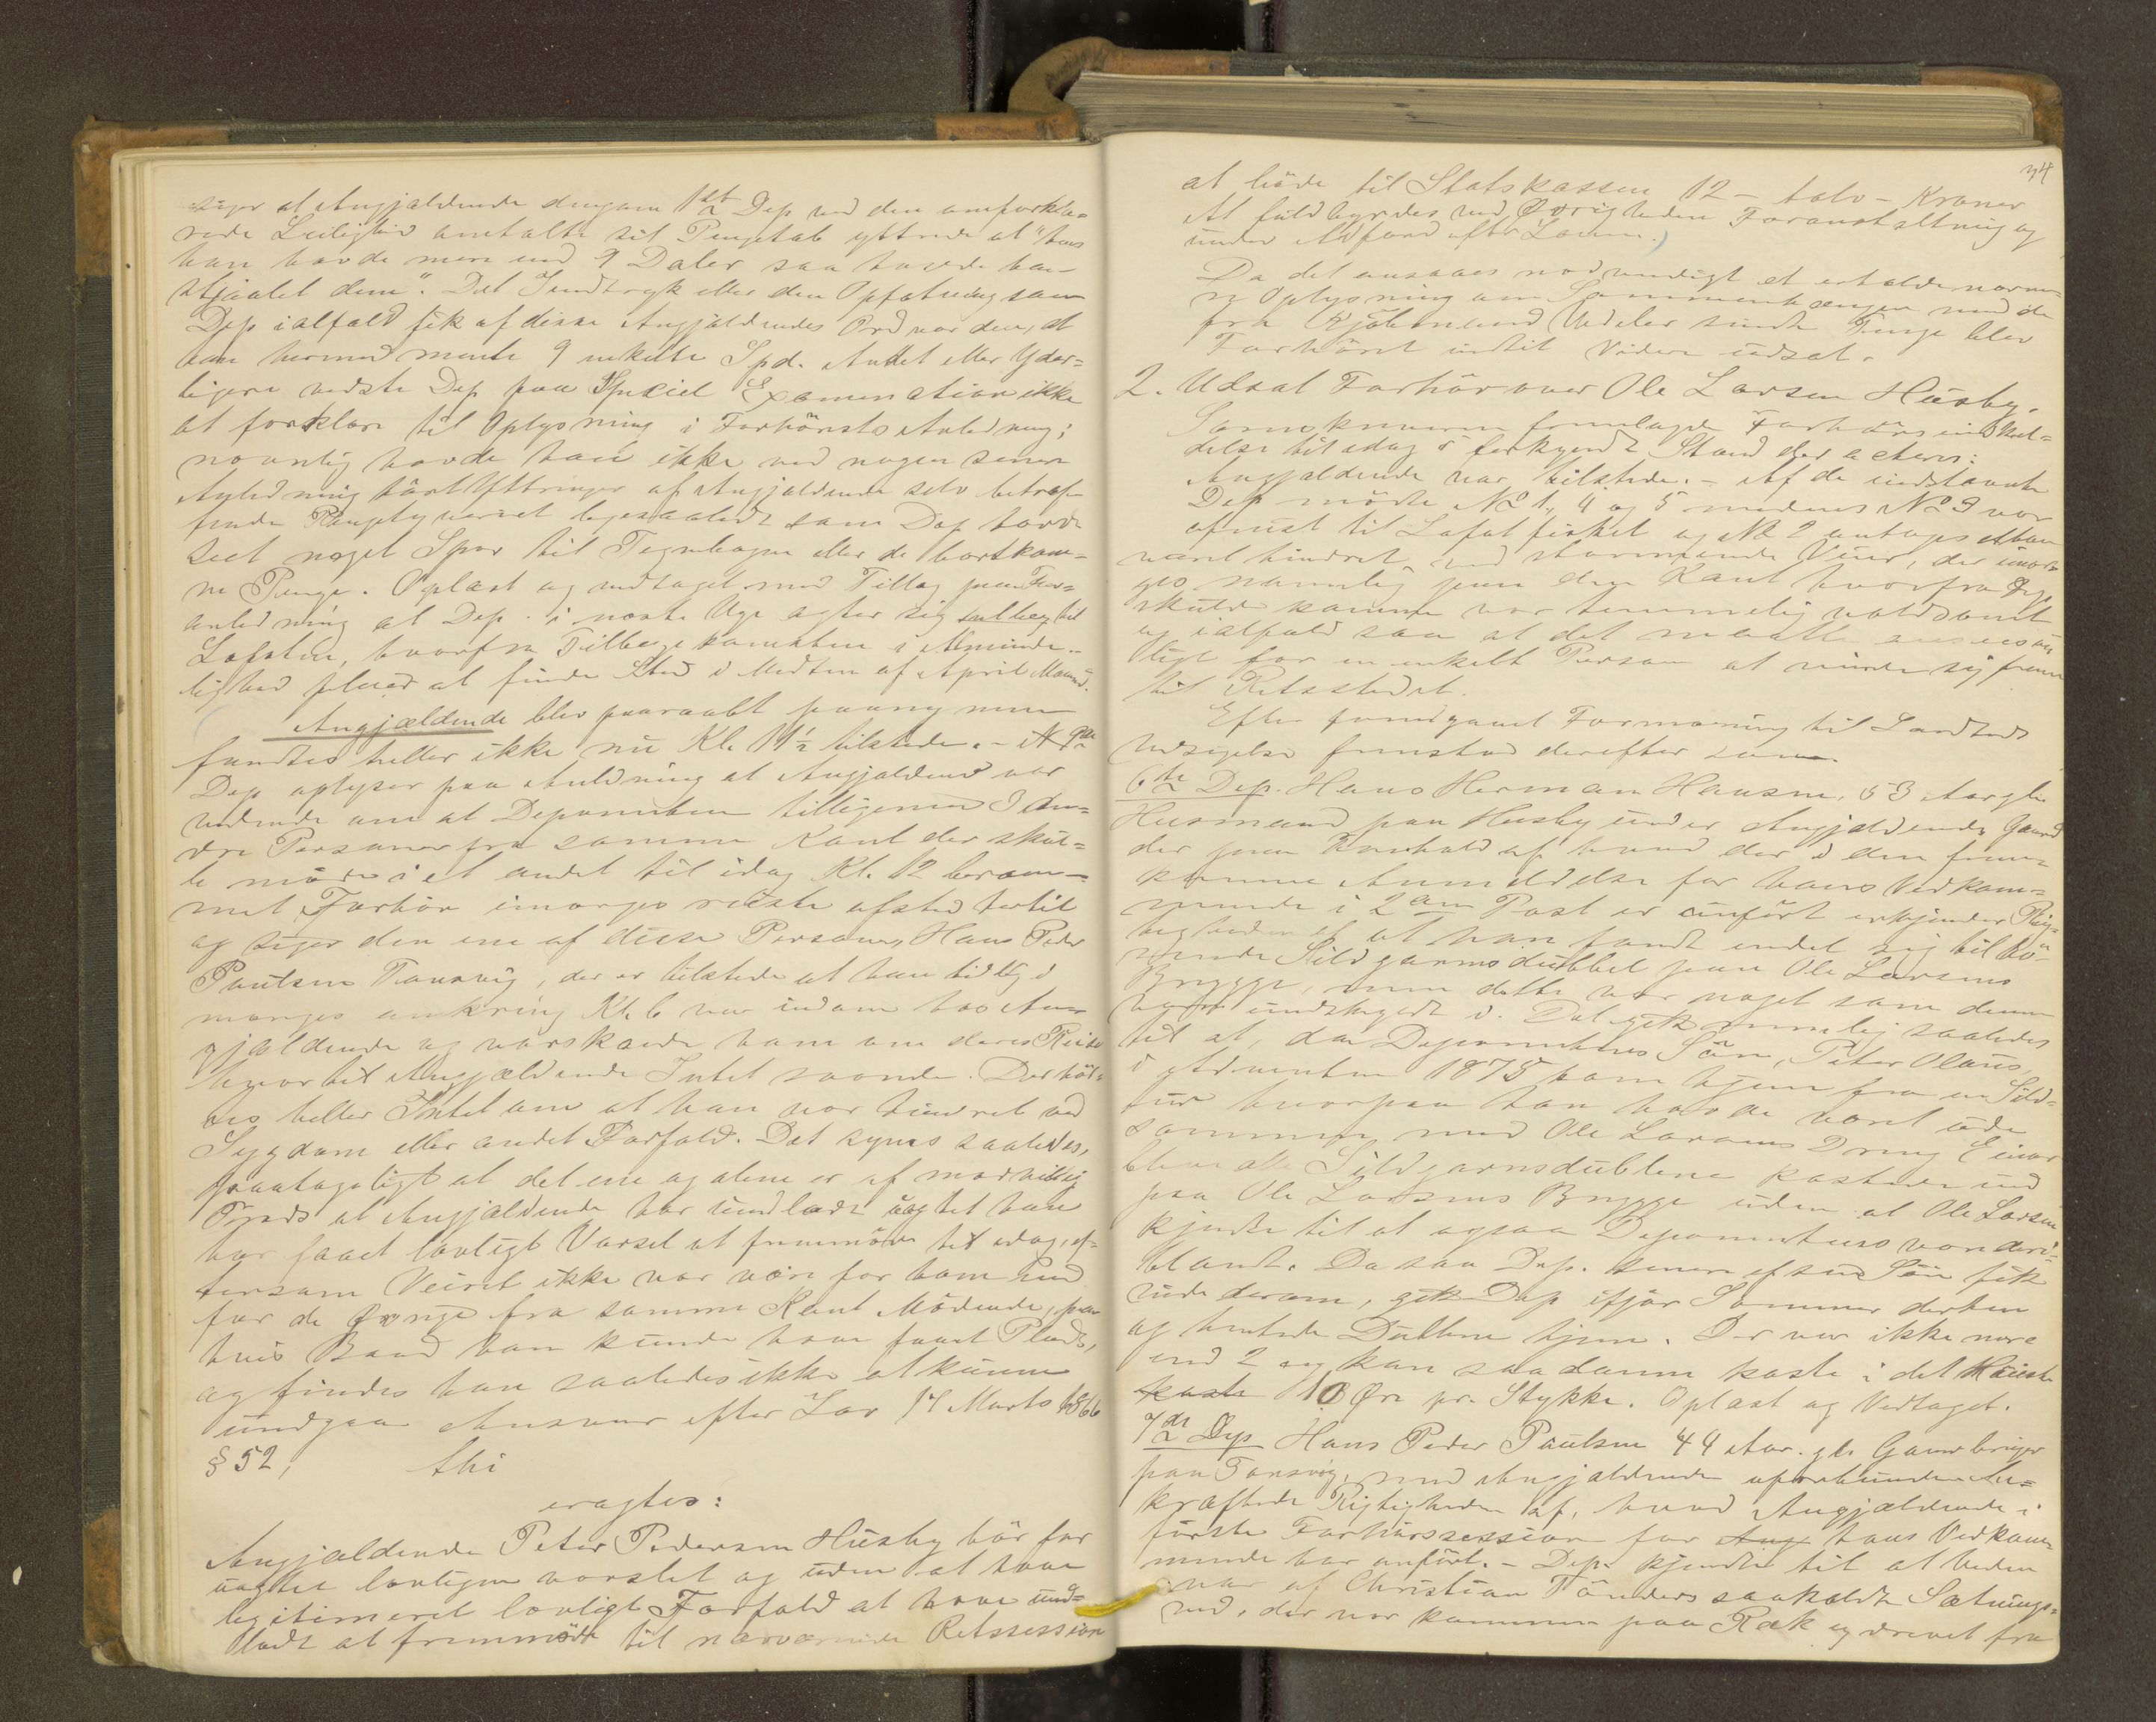 siger at Angjældende dengang 1ste Dep ved den omforkla-
rede Leilighed omtalte sit Pengetab yttrede at "hvis
han havde mere end 9 Daler saa havde han
stjaalet dem". Det Indtryk eller den Opfatning som
Dep ialfald fik af disse Angjældendes Ord var den, at
han hermed mente 9 enkelte Spd. Andet eller Yder-
ligere vidste Dep paa Speciel Examination ikke
at forklare til Oplysning i Forhørets Anledning;
navnlig havde han ikke ved nogen senere
Anledning hørt Yttringer af Angjældende selv betræf-
fende Pengetyveriet ligesaalidt som Dep havde
seet noget Spor til Tegnebogen eller de bortkom-
ne Penge. Oplæst og vedtaget med Tillæg paa For-
anledning at Dep. i næste Uge agter sig til
Lofoten, hvorfra Tilbagekomsten i Alminde-
lighed pleier at finde Sted i Midten af April Maaned.
Angjældende blev paaraabt paany men
fandtes heller ikke nu Kl. 11½ tilstede. -
Dep oplyser paa Anledning at Angjældende var
vidende om at Deponenten tilligemed 3 an-
dre Personer fra samme Kant der skul-
le møde i et andet til idag Kl. 12 beram-
met Forhør imorges reiste afsted hertil
og siger den ene af disse Personer, Hans Peder
Paulsen Tansvig, der er tilstede at han tidlig i
morges omkring Kl. 6 var indom hos An-
gjældende og varskoede ham om deres Reise
hvortil Angjældende Intet svarede. Der hør-
tes heller Intet om at han var hindret ved
Sygdom eller andet Forfald. Det synes saaledes,
paatageligt at det ene og alene er af modvillig
Trods at Angjældende har undladt uagtet han
har faaet lovligt Varsel at fremmøde til idag, ef-
tersom Veiret ikke var værre for ham end
for de øvrige fra samme Kant Mødende, paa
hvis Baad han kunde have faaet Plads,
og findes han saaledes ikke at kunne
undgaa Ansvar efter Lov 17 Marts 1866
§ 52, thi
eragtes:
Angjældende Peter Pedersen Husby bør for
uagtet lovligen varslet og uden at have
legitimeret lovligt Forfald at have und-
ladt at fremmøde til nærværende Retssession
34
at bøde til Statskassen 12 - tolv - Kroner
At fuldbyrdes ved Øvrighedens Foranstaltning og
under Adfærd efter Loven.)
Da det ansaaes nødvendigt at erholde nærme-
re Oplysning om Sammenhængen med de
fra Kjøbmand Vedeler sendte Penge blev
Forhøret indtil Videre udsat.
2. Udsat Forhør over Ole Larsen Husby.
Sorenskriveren fremlagde Forhørsindkal-
delse til idag i forkyndt Stand der acteres:
Angjældende var tilstede. - Af de indstævnte
Dep mødte No 1, 4 og 5 medens No 3 var
afreist til Lofotfisket og No 2 antoges at have
været hindret ved stormende Veir, der imor-
ges navnlig paa den Kant hvorfra Dep
skulde komme var temmelig voldsomt
og ialfald saa at det maatte
ligt for en enkelt Person at vinde sig frem
til Retsstedet.
Efter foregaaet Formaning til Sandheds
Udsigelse fremstod derefter som
6te Dep. Hans Herman Hansen, 53 Aar gl.
Husmand paa Husby under Angjældendes Gaard
der paa Forehold af hvad der i den frem-
komne Anmeldelse for hans Vedkom-
mende i 2den Post er anført erkjender Rig-
tigheden af at han fandt endel sig tilhø-
rende Sildgarnsdubbel paa Ole Larsens
Brygge, men dette var noget som denne
var uskyldt i. Det gik nemlig saaledes
til at, da Deponentens Søn, Peter Olaus,
i Adventen 1875 kom hjem fra en Sild-
tur hvorpaa han havde været ude
sammen med Ole Larsens Dreng Einar
bleve alle Sildgarnsdublene kastede ind
paa Ole Larsens Brygge uden at Ole Larsen
kjendte til at ogsaa Deponentens var deri-
blandt. Da saa Dep. senere af sin Søn fik
vide derom, gik Dep ifjor Sommer derhen
og hentede Dublene hjem. Der var ikke mere
end 2 og kan saadanne koste i det Høieste
koste 10 Øre pr. Stykke. Oplæst og Vedtaget.
7de Dep Hans Peder Paulsen 44 Aar gl. Gaardbruger
paa Tansvig, med Angjældende be-
kræftede Rigtigheden af, hvad Angjældende i
første Forhørssession for Ang hans Vedkom-
mende har anført. - Dep. kjendte til at Veden
var af Christian Tønders saakaldte Sætnings-
ved, der var kommen paa Ræk og drevet fra